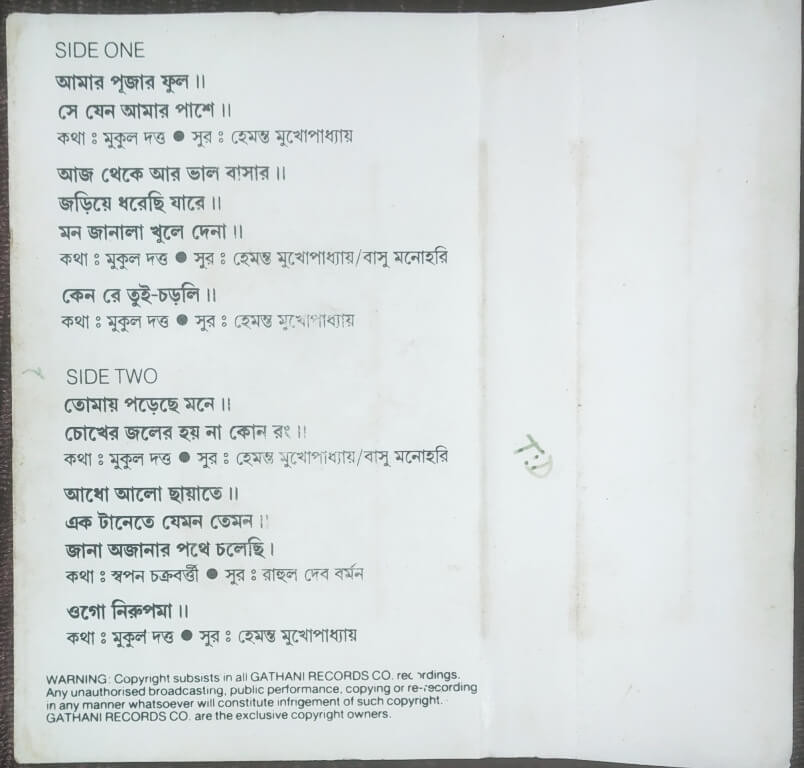 SIDE ONE
আমার পূজার ফুল ॥
সে যেন আমার পাশে ॥
কথা : মুকুল দত্ত ● সুর : হেমন্ত মুখোপাধ্যায়
আজ থেকে আর ভাল বাসার ॥
জড়িয়ে ধরেছি যারে ॥
মন জানালা খুলে দেনা ॥
কথা : মুকুল দত্ত ● সুর : হেমন্ত মুখোপাধ্যায়/বাসু মনোহরি
কেন রে তুই-চড়লি ॥
কথা : মুকুল দত্ত ● সুর : হেমন্ত মুখোপাধ্যায়
SIDE TWO
তোমায় পড়েছে মনে ॥
চোখের জলের হয় না কোন রং ॥
কথা : মুকুল দত্ত ● সুর : হেমন্ত মুখোপাধ্যায়/বাসু মনোহরি
আধো আলো ছায়াতে ॥
এক টানেতে যেমন তেমন ॥
জানা অজানার পথে চলেছি ।
কথা : স্বপন চক্রবর্ত্তী ● সুর : রাহুল দেব বর্মন
ওগো নিরুপমা ॥
কথা : মুকুল দত্ত ● সুর : হেমন্ত মুখোপাধ্যায়
T:D
WARNING: Copyright subsists in all GATHANI RECORDS CO. recordings.
Any unauthorised broadcasting, public performance, copying or re-recording
in any manner whatsoever will constitute infrigement of such copyright.
GATHANI RECORDS CO. are the exclusive copyright owners.